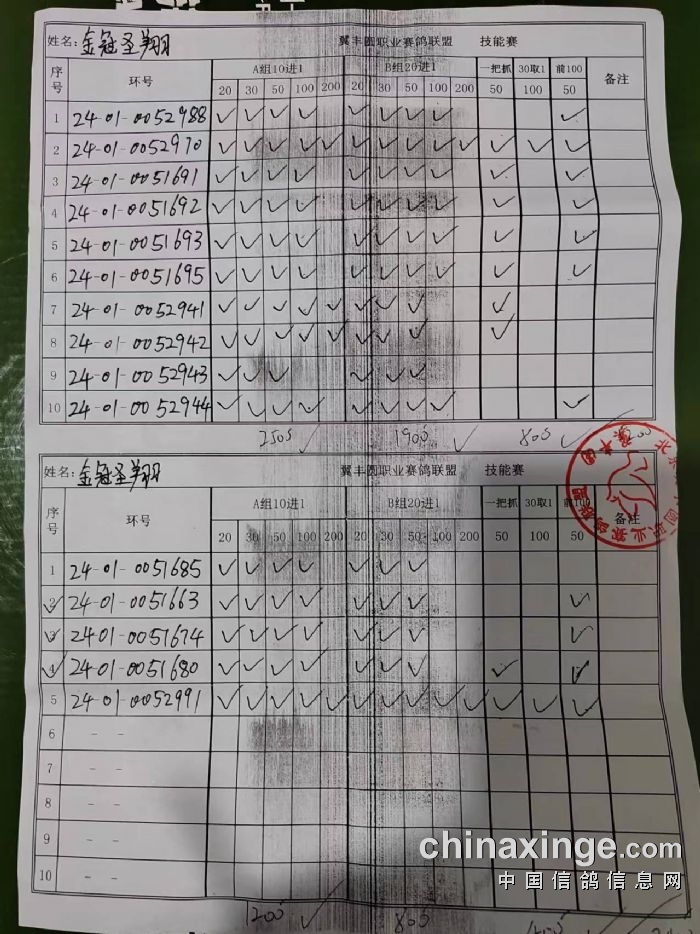 姓名: 金冠圣翔 翼丰圆职业赛鸽联盟 技能赛
序号 环号 A组10进1 B组20进1 一把抓 30取1 前100 备注
20 30 50 100 200 20 30 50 100 200 50 100 50
1 24-01-0052988 ✓ ✓ ✓ ✓ ✓ ✓ ✓ ✓ ✓
2 24-01-0052970 ✓ ✓ ✓ ✓ ✓ ✓ ✓ ✓ ✓ ✓ ✓ ✓ ✓
3 24-01-0051691 ✓ ✓ ✓ ✓ ✓ ✓ ✓ ✓ ✓ ✓
4 24-01-0051692 ✓ ✓ ✓ ✓ ✓ ✓ ✓ ✓ ✓ ✓
5 24-01-0051693 ✓ ✓ ✓ ✓ ✓ ✓ ✓ ✓ ✓ ✓
6 24-01-0051695 ✓ ✓ ✓ ✓ ✓ ✓ ✓ ✓ ✓ ✓
7 24-01-0052941 ✓ ✓ ✓ ✓ ✓ ✓ ✓ ✓ ✓
8 24-01-0052942 ✓ ✓ ✓ ✓ ✓ ✓ ✓ ✓ ✓
9 24-01-0052943 ✓ ✓ ✓ ✓ ✓ ✓
10 24-01-0052944 ✓ ✓ ✓ ✓ ✓ ✓ ✓ ✓ ✓
1900 ✓ 800 ✓
姓名: 金冠圣翔 翼丰圆职业赛鸽联盟 技能赛
序号 环号 A组10进1 B组20进1 一把抓 30取1 前100 备注
20 30 50 100 200 20 30 50 100 200 50 100 50
1 24-01-0051685 ✓ ✓ ✓ ✓ ✓ ✓ ✓
2 24-01-0051663 ✓ ✓ ✓ ✓ ✓ ✓ ✓ ✓
3 2401-0051674 ✓ ✓ ✓ ✓ ✓ ✓ ✓ ✓
4 24-01-0051680 ✓ ✓ ✓ ✓ ✓ ✓ ✓ ✓ ✓
5 24-01-0052991 ✓ ✓ ✓ ✓ ✓ ✓ ✓ ✓ ✓ ✓ ✓ ✓ ✓
6 - -
7 - -
8 - -
9 - -
10 - -
chinaxinge.com
中国信鸽信息网
1200 ✓ 800